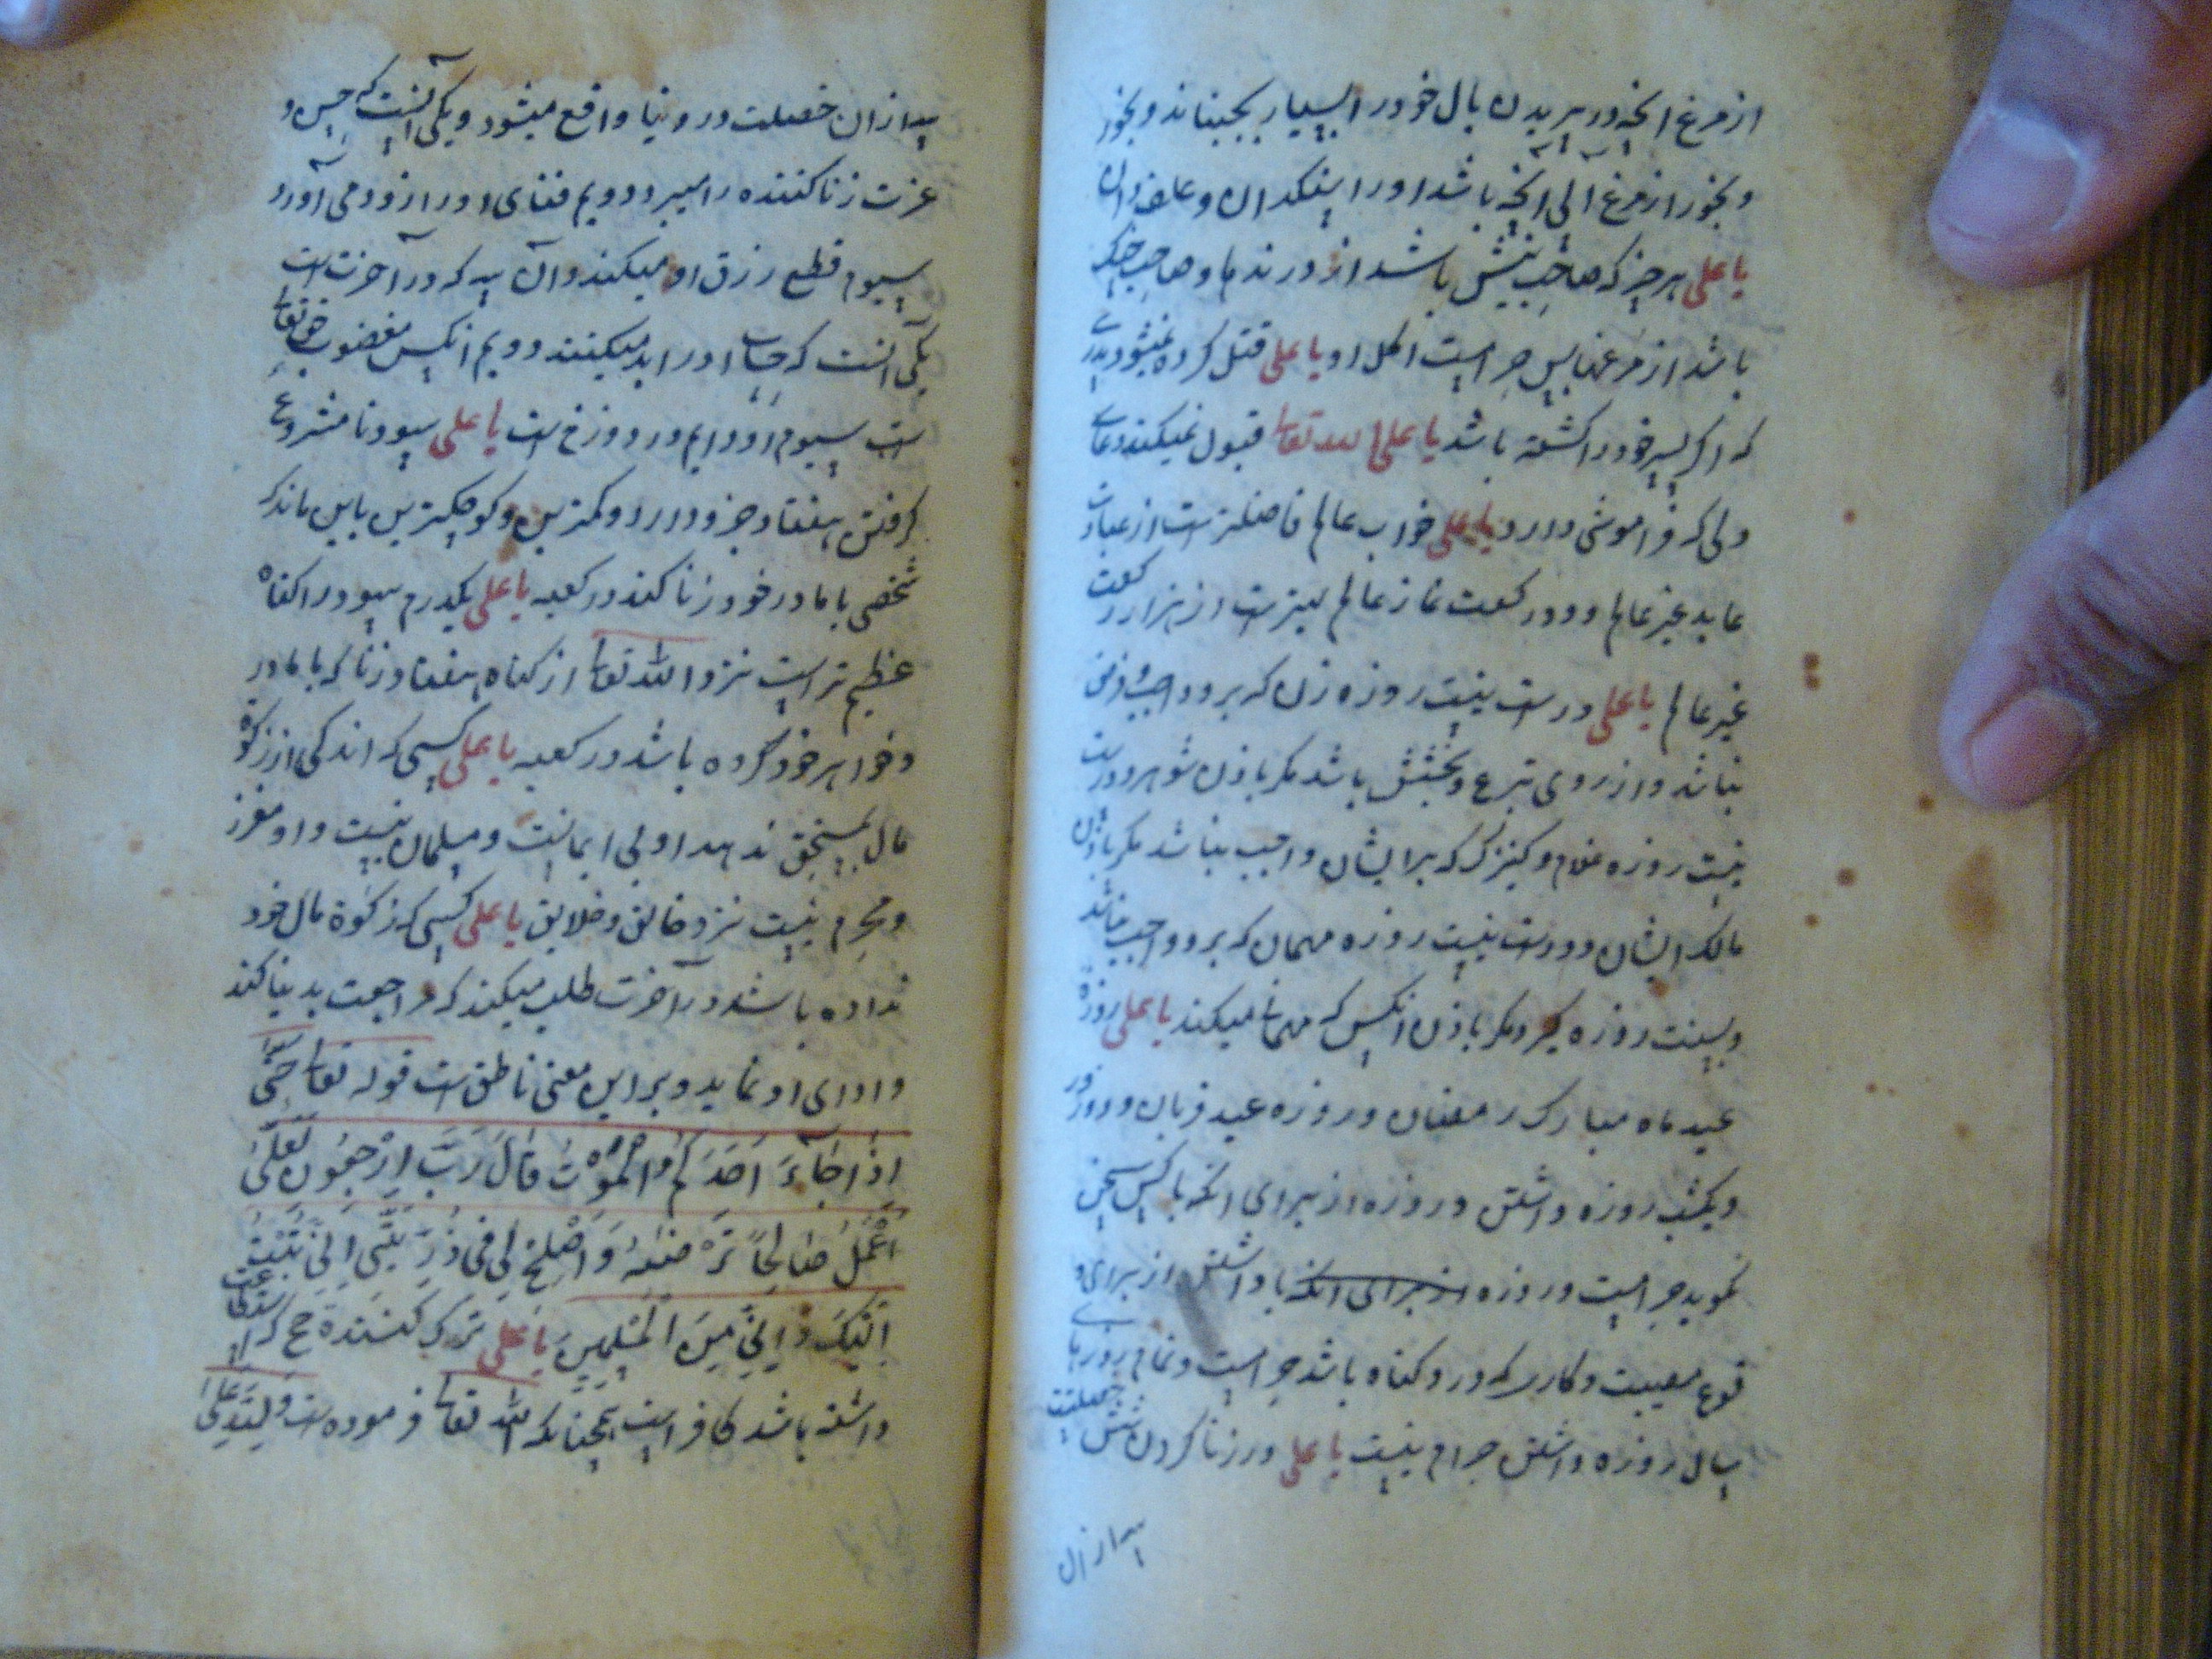 از مرغ انچه در پریدن بال خود را بسیار بجنباند و بخور
و بخور از مرغ آبی آنچه باشد او را سنگدان و علف دان
یا علی هر چیز که صاحب نیش باشد از درندها و صاحب چنگ
باشد از مرغها پس حرامست اکل او یا علی قتل کرده نمیشود پدری
که اگر پسر خود را کشته باشد یا علی الله تعالی قبول نمیکند دعای
دلی که فراموشی دارد یا علی خواب عالم فاضلترست از عبادت
عابد غیر عالم و دو رکعت نماز عالم بهترست از هزار رکعت
غیر عالم یا علی درست نیست روزه زن که برو واجب و فرض
نباشد و از روی تبرع و بخشش باشد مگر باذن شوهر و درست
نیست روزه غلام و کنیزک که بر ایشان واجب نباشد مگر باذن
مالک ایشان و درست نیست روزه مهمان که برو واجب نباشد
و بسنت روزه گیرد مگر باذن انکس که مهمانی میکند یا علی روزه
عید ماه مبارک رمضان و روزه عید قربان و دو روز
و یکشب روزه داشتن و روزه از برای انکه با کس سخن
نگوید حرامست و روزه از برای انکه با داشتن از برای و
قوع معصیت و کاری که در و کناه باشد حرامست و تمام روزهای
سال روزه داشتن حرام نیست یا علی در زنا کردن شش خصلتست
سه از ان
سه از ان خصلت در دنیا واقع میشود و یکی آنست که حسن و
عزت زنا کننده را میبرد دویم فنای او را زود می آورد
سیوم قطع رزق او میکند و آن سه که در آخرت است
یکی آنست که حساب او را بد میکنند دویم انکس مغضوب حق تعالی
است سیوم او دایم در دوزخ است یا علی سود نا مشروع
گرفتن هفتاد جزو دارد و کمترین و کوچکترین باین ماند که
شخصی با مادر خود زنا کند در کعبه یا علی یکدرم سود را کناه
عظیم تر است نزد الله تعالی از کناه هفتاد زنا که با مادر
و خواهر خود کرده باشد در کعبه یا علی کسی که اندکی از زکوة
مال بمستحق ندهد او بی ایمانست و مسلمان نیست و او معزز
و محرم نیست نزد خالق و خلایق یا علی کسی که زکوة مال خود
نداده باشد در آخرت طلب میکند که مراجعت بدینا کند
و ادای او نماید و بر این معنی ناطق است قوله تعالی حَتّی
اِذَا جَآءَ اَحَدَکُمُ الْمَوْتُ قَالَ رَبِّ ارْجِعُونِ لَعَلّی
اَعْمَلُ صَالِحاً تَرْضٰهُ وَاَصْلِحْ لِی فِی ذُرِّیَّتِی اِنِّی تُبْتُ
اِلَیْکَ وَاِنِّی مِنَ الْمُسْلِمِینَ یا علی ترک کننده حج که استطاعت
داشته باشد کافر است چنانکه الله تعالی فرموده است وَلِلّٰهِ عَلَی